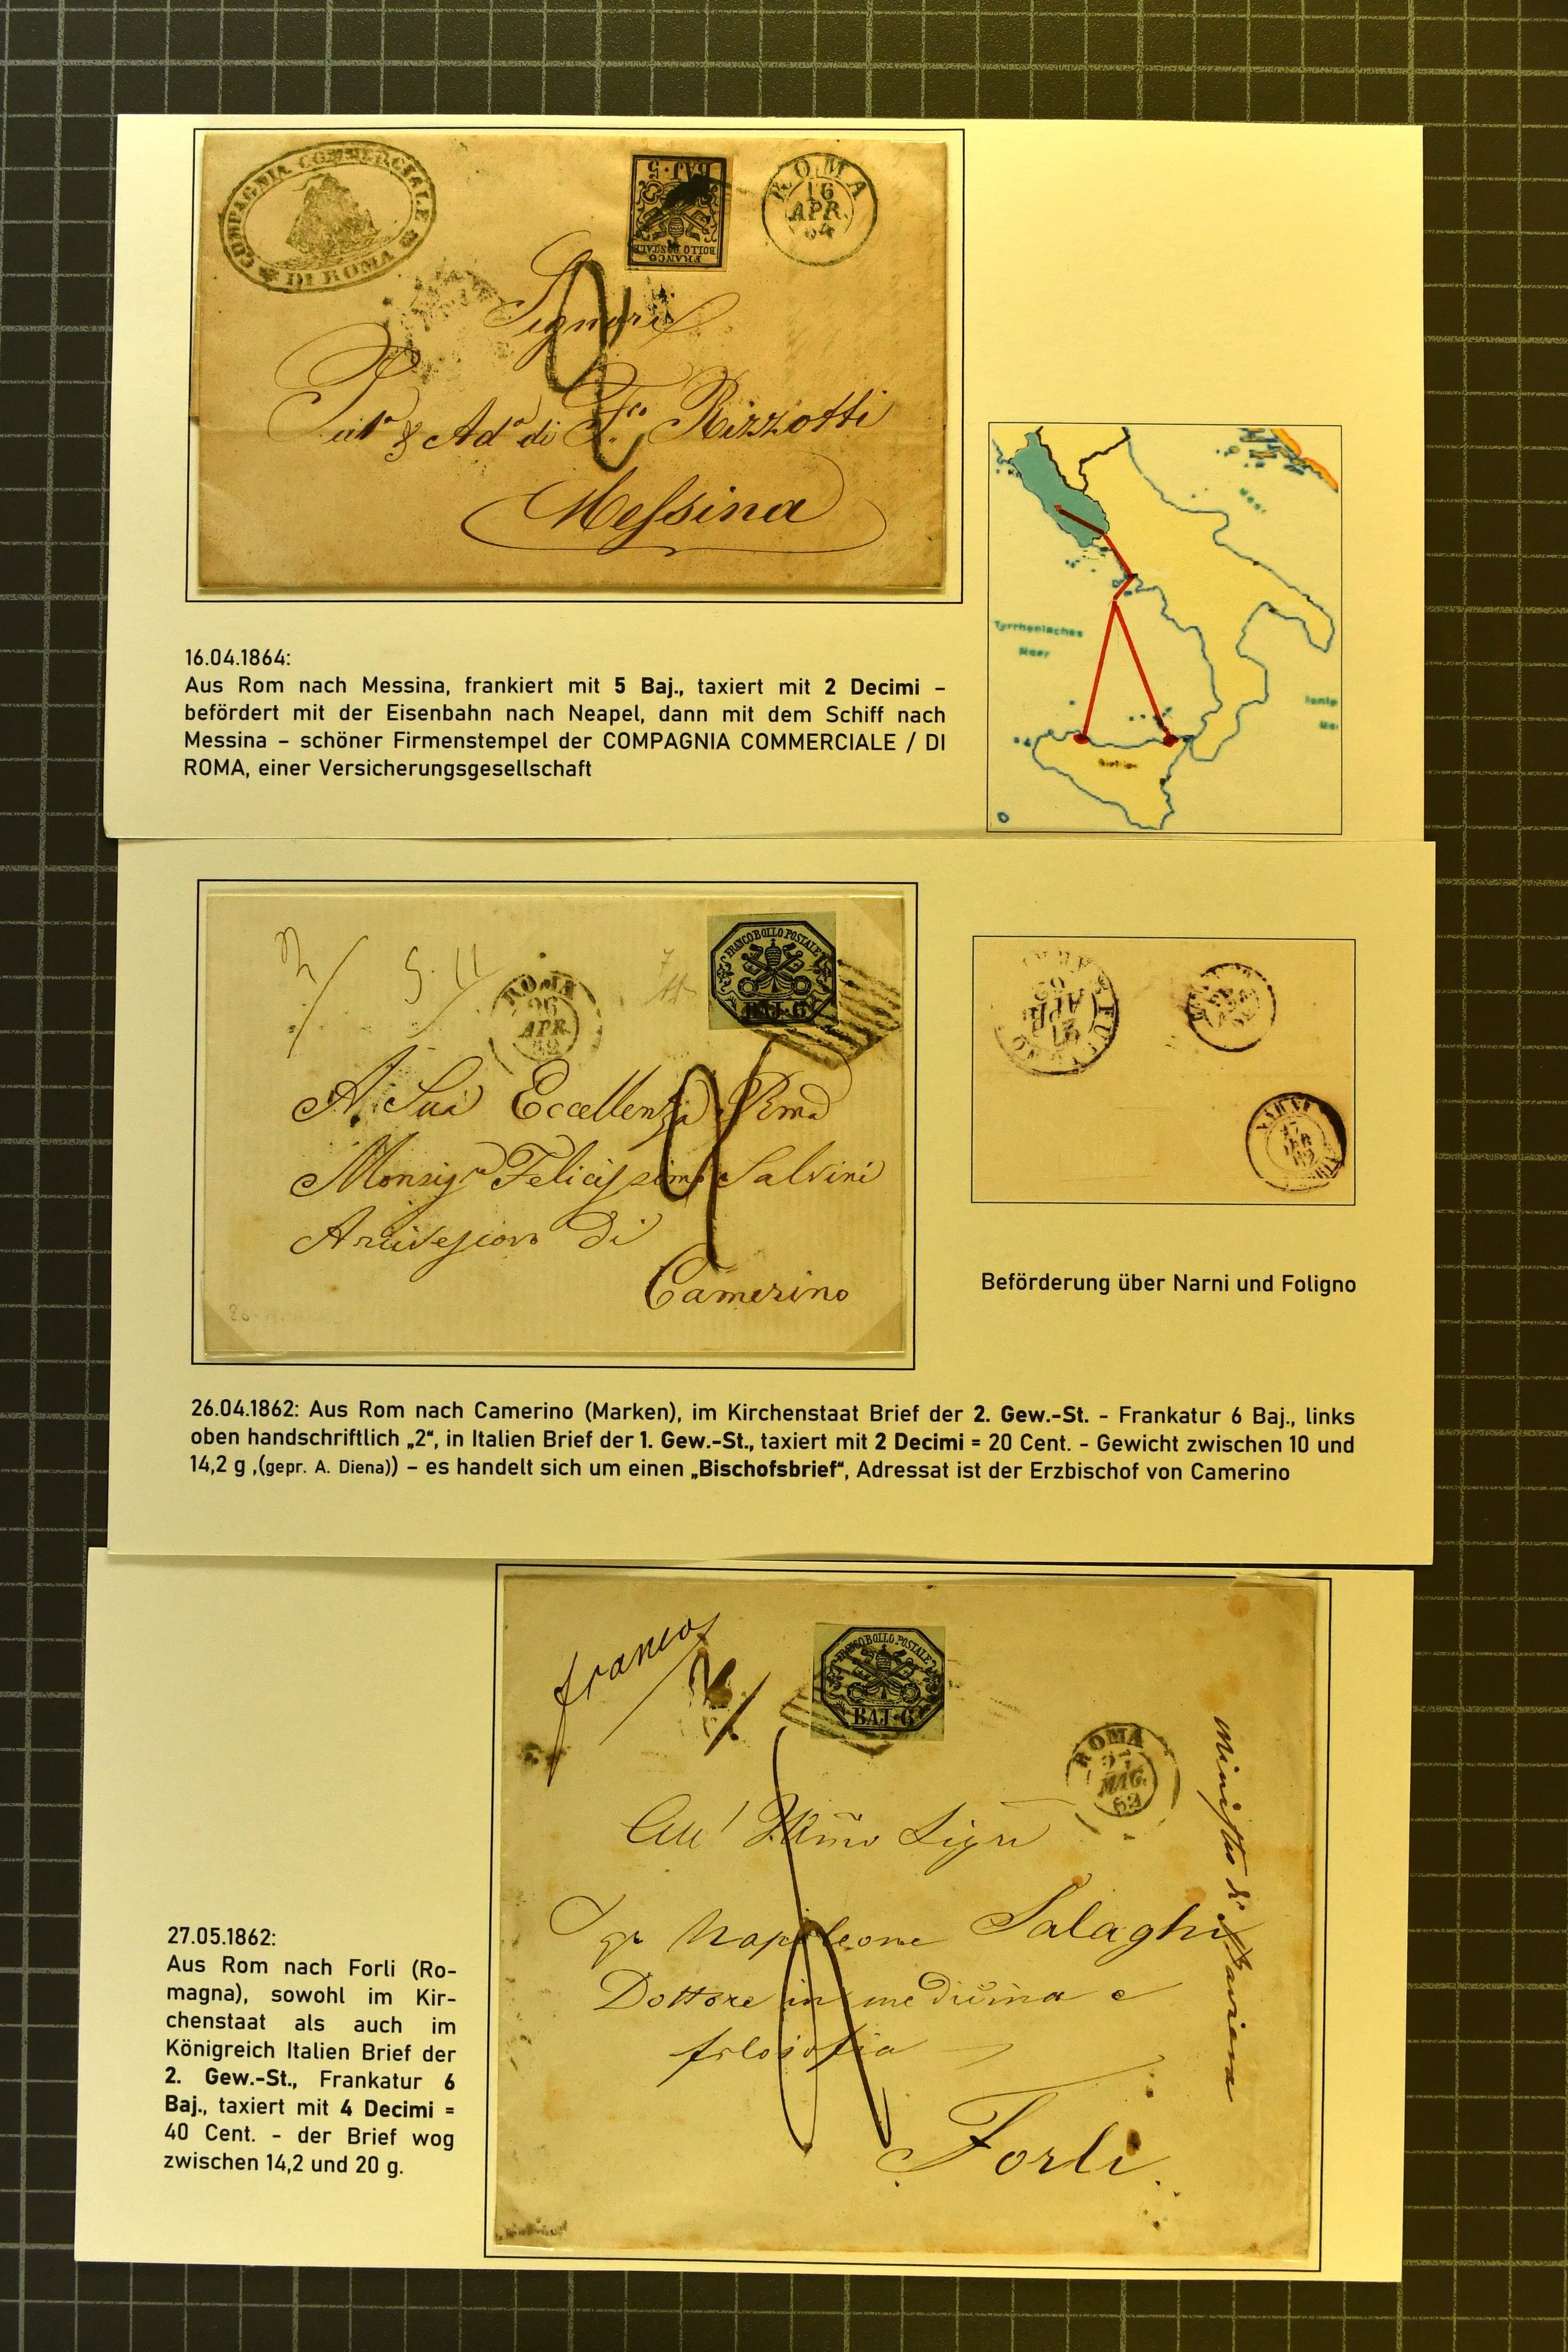 COMPAGNIA COMMERCIALE
DI ROMA
BAJ. 5
FRANCO
BOLLO POSTALE
ROMA
16
APR.
64
Signori
& Ad.a di F.co Rizzotti
Messina
16.04.1864:
Aus Rom nach Messina, frankiert mit 5 Baj., taxiert mit 2 Decimi –
befördert mit der Eisenbahn nach Neapel, dann mit dem Schiff nach
Messina – schöner Firmenstempel der COMPAGNIA COMMERCIALE / DI
ROMA, einer Versicherungsgesellschaft
Tyrrhenisches
Meer
FRANCO BOLLO POSTALE
BAJ. 6
ROMA
26
APR.
62
A Sua Eccellenza Rma
Monsigr Felicissimo Salvini
Arcivescovo di
Camerino
NARNI
Beförderung über Narni und Foligno
26.04.1862: Aus Rom nach Camerino (Marken), im Kirchenstaat Brief der 2. Gew.-St. - Frankatur 6 Baj., links
oben handschriftlich „2“, in Italien Brief der 1. Gew.-St., taxiert mit 2 Decimi = 20 Cent. - Gewicht zwischen 10 und
14,2 g ,(gepr. A. Diena)) – es handelt sich um einen „Bischofsbrief“, Adressat ist der Erzbischof von Camerino
franca
FRANCO BOLLO POSTALE
BAJ. 6
ROMA
27
MAG.
62
All' Illmo Sigre
Napoleone Salaghi
Dottore in medicina e
filosofia
Forlì
27.05.1862:
Aus Rom nach Forli (Ro-
magna), sowohl im Kir-
chenstaat als auch im
Königreich Italien Brief der
2. Gew.-St., Frankatur 6
Baj., taxiert mit 4 Decimi =
40 Cent. - der Brief wog
zwischen 14,2 und 20 g.